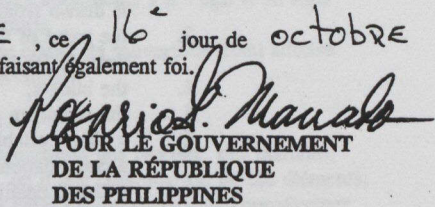 E, ce 16e jour de octobRE
faisant également foi.
Rosario G. Manalo
POUR LE GOUVERNEMENT
DE LA RÉPUBLIQUE
DES PHILIPPINES